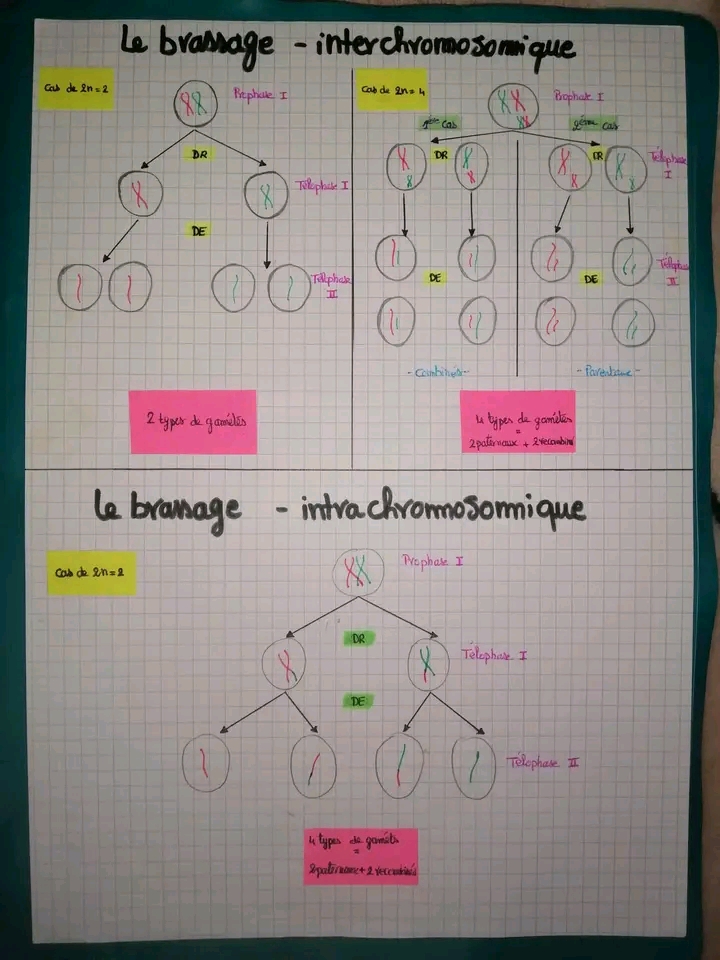 Le brassage - interchromosomique
Cas de 2n=2
Prophase I
DR
Télophase I
DE
Télophase II
2 types de gamétes
Cas de 2n=4
Prophase I
1ère cas
2ème cas
DR
DR
Télophase I
DE
DE
Télophase II
- Combinés -
4 types de gamétes
=
2 paternaux + 2 recombiné
Le brassage - intrachromosomique
Cas de 2n=2
Prophase I
DR
Télophase I
DE
Télophase II
4 types de gaméts
=
+ 2 recombinés